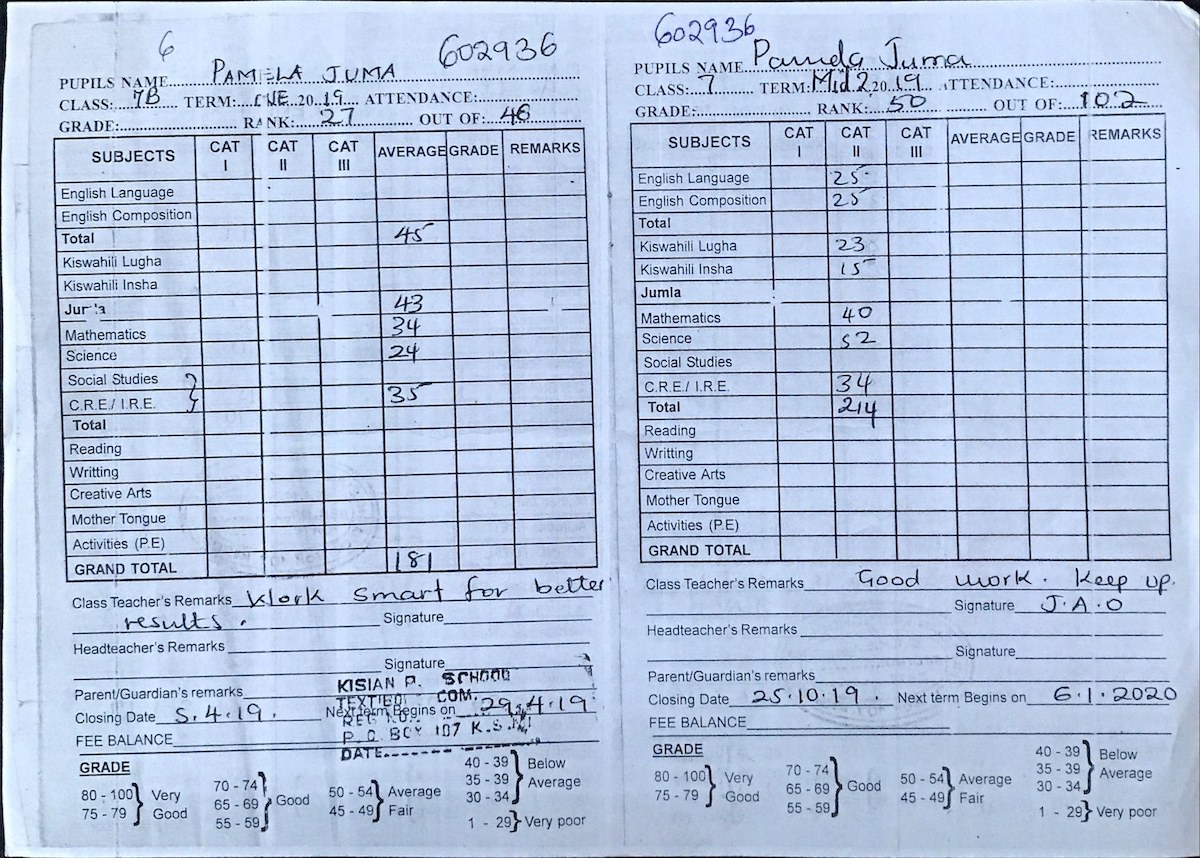 6
602936
PUPILS NAME PAMELA JUMA
CLASS: 7B TERM: ONE 2019 ATTENDANCE:
GRADE: RANK: 27 OUT OF: 46
SUBJECTS CAT I CAT II CAT III AVERAGE GRADE REMARKS
English Language
English Composition
Total 45
Kiswahili Lugha
Kiswahili Insha
Jumla 43
Mathematics 34
Science 24
Social Studies
C.R.E./ I.R.E. 35
Total
Reading
Writting
Creative Arts
Mother Tongue
Activities (P.E)
GRAND TOTAL 181
Class Teacher's Remarks Work smart for better
results. Signature
Headteacher's Remarks
Signature
KISIAN P. SCHOOL
Parent/Guardian's remarks
Closing Date 5.4.19. Next term Begins on 29.4.19
P. O. BOX 107
FEE BALANCE
DATE
GRADE
80 - 100
75 - 79
Very
Good
70 - 74
65 - 69
55 - 59
Good
50 - 54
45 - 49
Average
Fair
40 - 39
35 - 39
30 - 34
Below
Average
1 - 29 Very poor
602936
PUPILS NAME Pamela Juma
CLASS: 7 TERM: Mid 2 2019 ATTENDANCE:
GRADE: RANK: 50 OUT OF: 102
SUBJECTS CAT I CAT II CAT III AVERAGE GRADE REMARKS
English Language 25
English Composition 25
Total
Kiswahili Lugha 23
Kiswahili Insha 15
Jumla
Mathematics 40
Science 52
Social Studies
C.R.E./ I.R.E. 34
Total 214
Reading
Writting
Creative Arts
Mother Tongue
Activities (P.E)
GRAND TOTAL
Class Teacher's Remarks Good work. Keep up.
Signature J.A.O
Headteacher's Remarks
Signature
Parent/Guardian's remarks
Closing Date 25.10.19. Next term Begins on 6.1.2020
FEE BALANCE
GRADE
80 - 100
75 - 79
Very
Good
70 - 74
65 - 69
55 - 59
Good
50 - 54
45 - 49
Average
Fair
40 - 39
35 - 39
30 - 34
Below
Average
1 - 29 Very poor